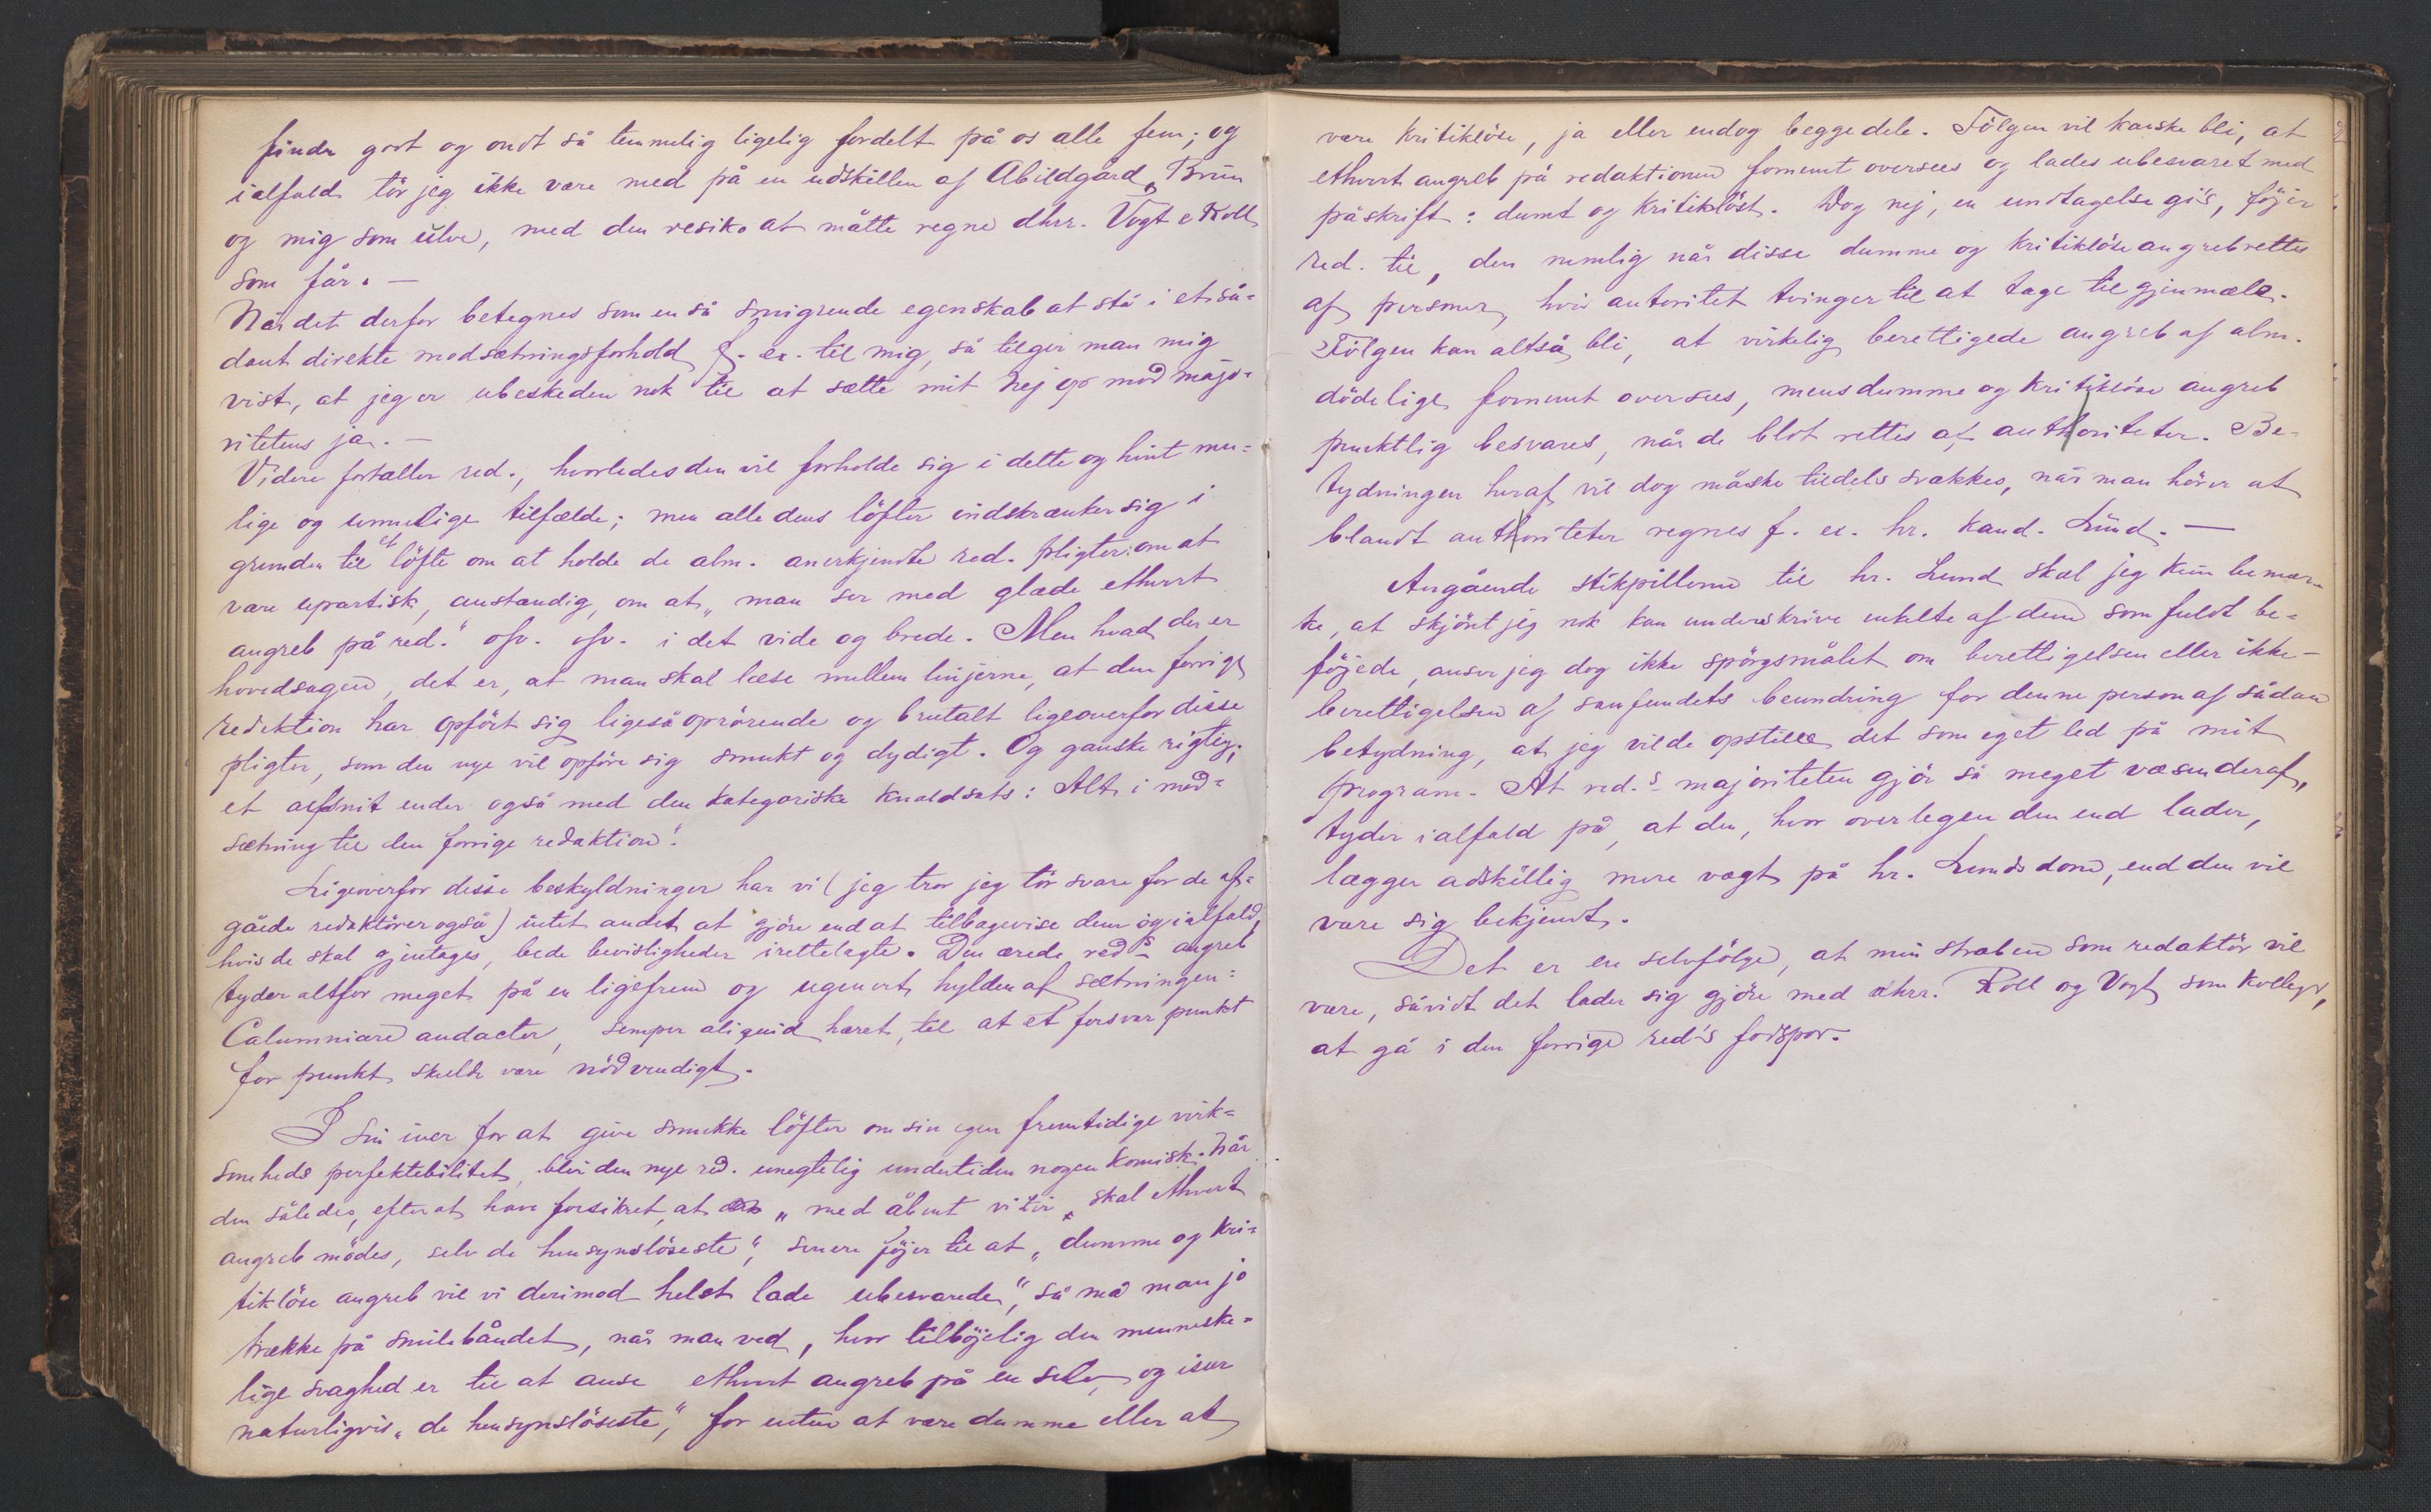 finder godt og ondt så temmelig ligelig fordelt på os alle fem; og
ialfald tör jeg ikke være med på en udskillen af Abildgård, Brun
og mig som ulve, med den resiko at måtte regne dhrr. Vogt & Roll
som får. —
Når det derfor betegnes som en så smigrende egenskab at stå i et så-
dant direkte modsætningsforhold f. ex. til mig, så tilgir man mig
vist, at jeg er ubeskeden nok til at sætte mit nej op mod majo-
ritetens ja. —
Videre fortæller red., hvorledes den vil forholde sig i dette og hint mu-
lige og umulige tilfælde; men alle dens löfter indskrænker sig i
grunden til et löfte om at holde de alm. anerkjendte red. pligter: om at
være upartisk, anstændig, om at „man ser med glæde ethvert
angreb på red." osv. osv. i det vide og brede. Men hvad der er
hovedsagen, det er, at man skal læse mellem linjerne, at den forrige
redaktion har opfört sig ligeså oprörende og brutalt ligeoverfor disse
pligter, som den nye vil opföre sig smukt og dydigt. Og ganske rigtig;
et afsnit ender også med den kategoriske knaldsats: Alt i mod-
sætning til den forrige redaktion".
Ligeoverfor disse beskyldninger har vi (jeg tror jeg tör svare for de af-
gåede redaktörer også) intet andet at gjöre end at tilbagevise dem og ialfald,
hvis de skal gjentages, bede bevisligheder irettelagte. Den ærede red's angreb
tyder altfor meget på en ligefrem og ugenert hylden af sætningen:
Calumniare audacter, semper aliquid hæret, til at et forsvar punkt
for punkt skulde være nödvendigt.
I sin iver for at give smukke löfter om sin egen fremtidige virk-
somheds perfektibilitet, blir den nye red. unegtelig undertiden nogen komisk. Når
den således, efter at have forsikret, at „med åbent visir skal ethvert
angreb mödes, selv de hensynslöseste", senere föjer til at „dumme og kri-
tiklöse angreb vil vi derimod helst lade ubesvarede", så må man jo
trække på smilebåndet, når man ved, hvor tilböjelig den menneske-
lige svaghed er til at anse ethvert angreb på en selv, og især
naturligvis „de hensynslöseste", for enten at være dumme eller at
være kritiklöse, ja eller endog begge dele. Fölgen vil kanske bli, at
ethvert angreb på redaktionen fornemt oversees og lades ubesvaret med
påskrift: dumt og kritiklöst. Dog nej, en undtagelse gis, föjer
red. til, den nemlig når disse dumme og kritiklöse angreb rettes
af personer, hvis autoritet tvinger til at tage til gjenmæle.
Fölgen kan altså bli, at virkelig berettigede angreb af alm.
dödelige fornemt oversees, mens dumme og kritiklöse angreb
punktlig besvares, når de blot rettes af authoriteter. Be-
tydningen heraf vil dog måske tildels svækkes, når man hörer at
blandt authoriteter regnes f. ex. hr. kand. Lund. —
Angående stikpillerne til hr. Lund skal jeg kun bemær-
ke, at skjönt jeg nok kan underskrive enkelte af dem som fuldt be-
föjede, anser jeg dog ikke spörgsmålet om berettigelsen eller ikke-
berettigelsen af samfundets beundring for denne person af sådan
betydning, at jeg vilde opstille det som eget led på mit
program. At red.'s majoriteten gjör så meget væsen deraf,
tyder ialfald på, at den, hvor overlegen den end lader,
lægger adskillig mere vægt på hr. Lunds dom, end den vil
være sig bekjendt.
Det er en selvfölge, at min stræben som redaktör vil
være, såvidt det lader sig gjöre med dhrr. Roll og Vogt som kolleger,
at gå i den forrige red's fodspor.